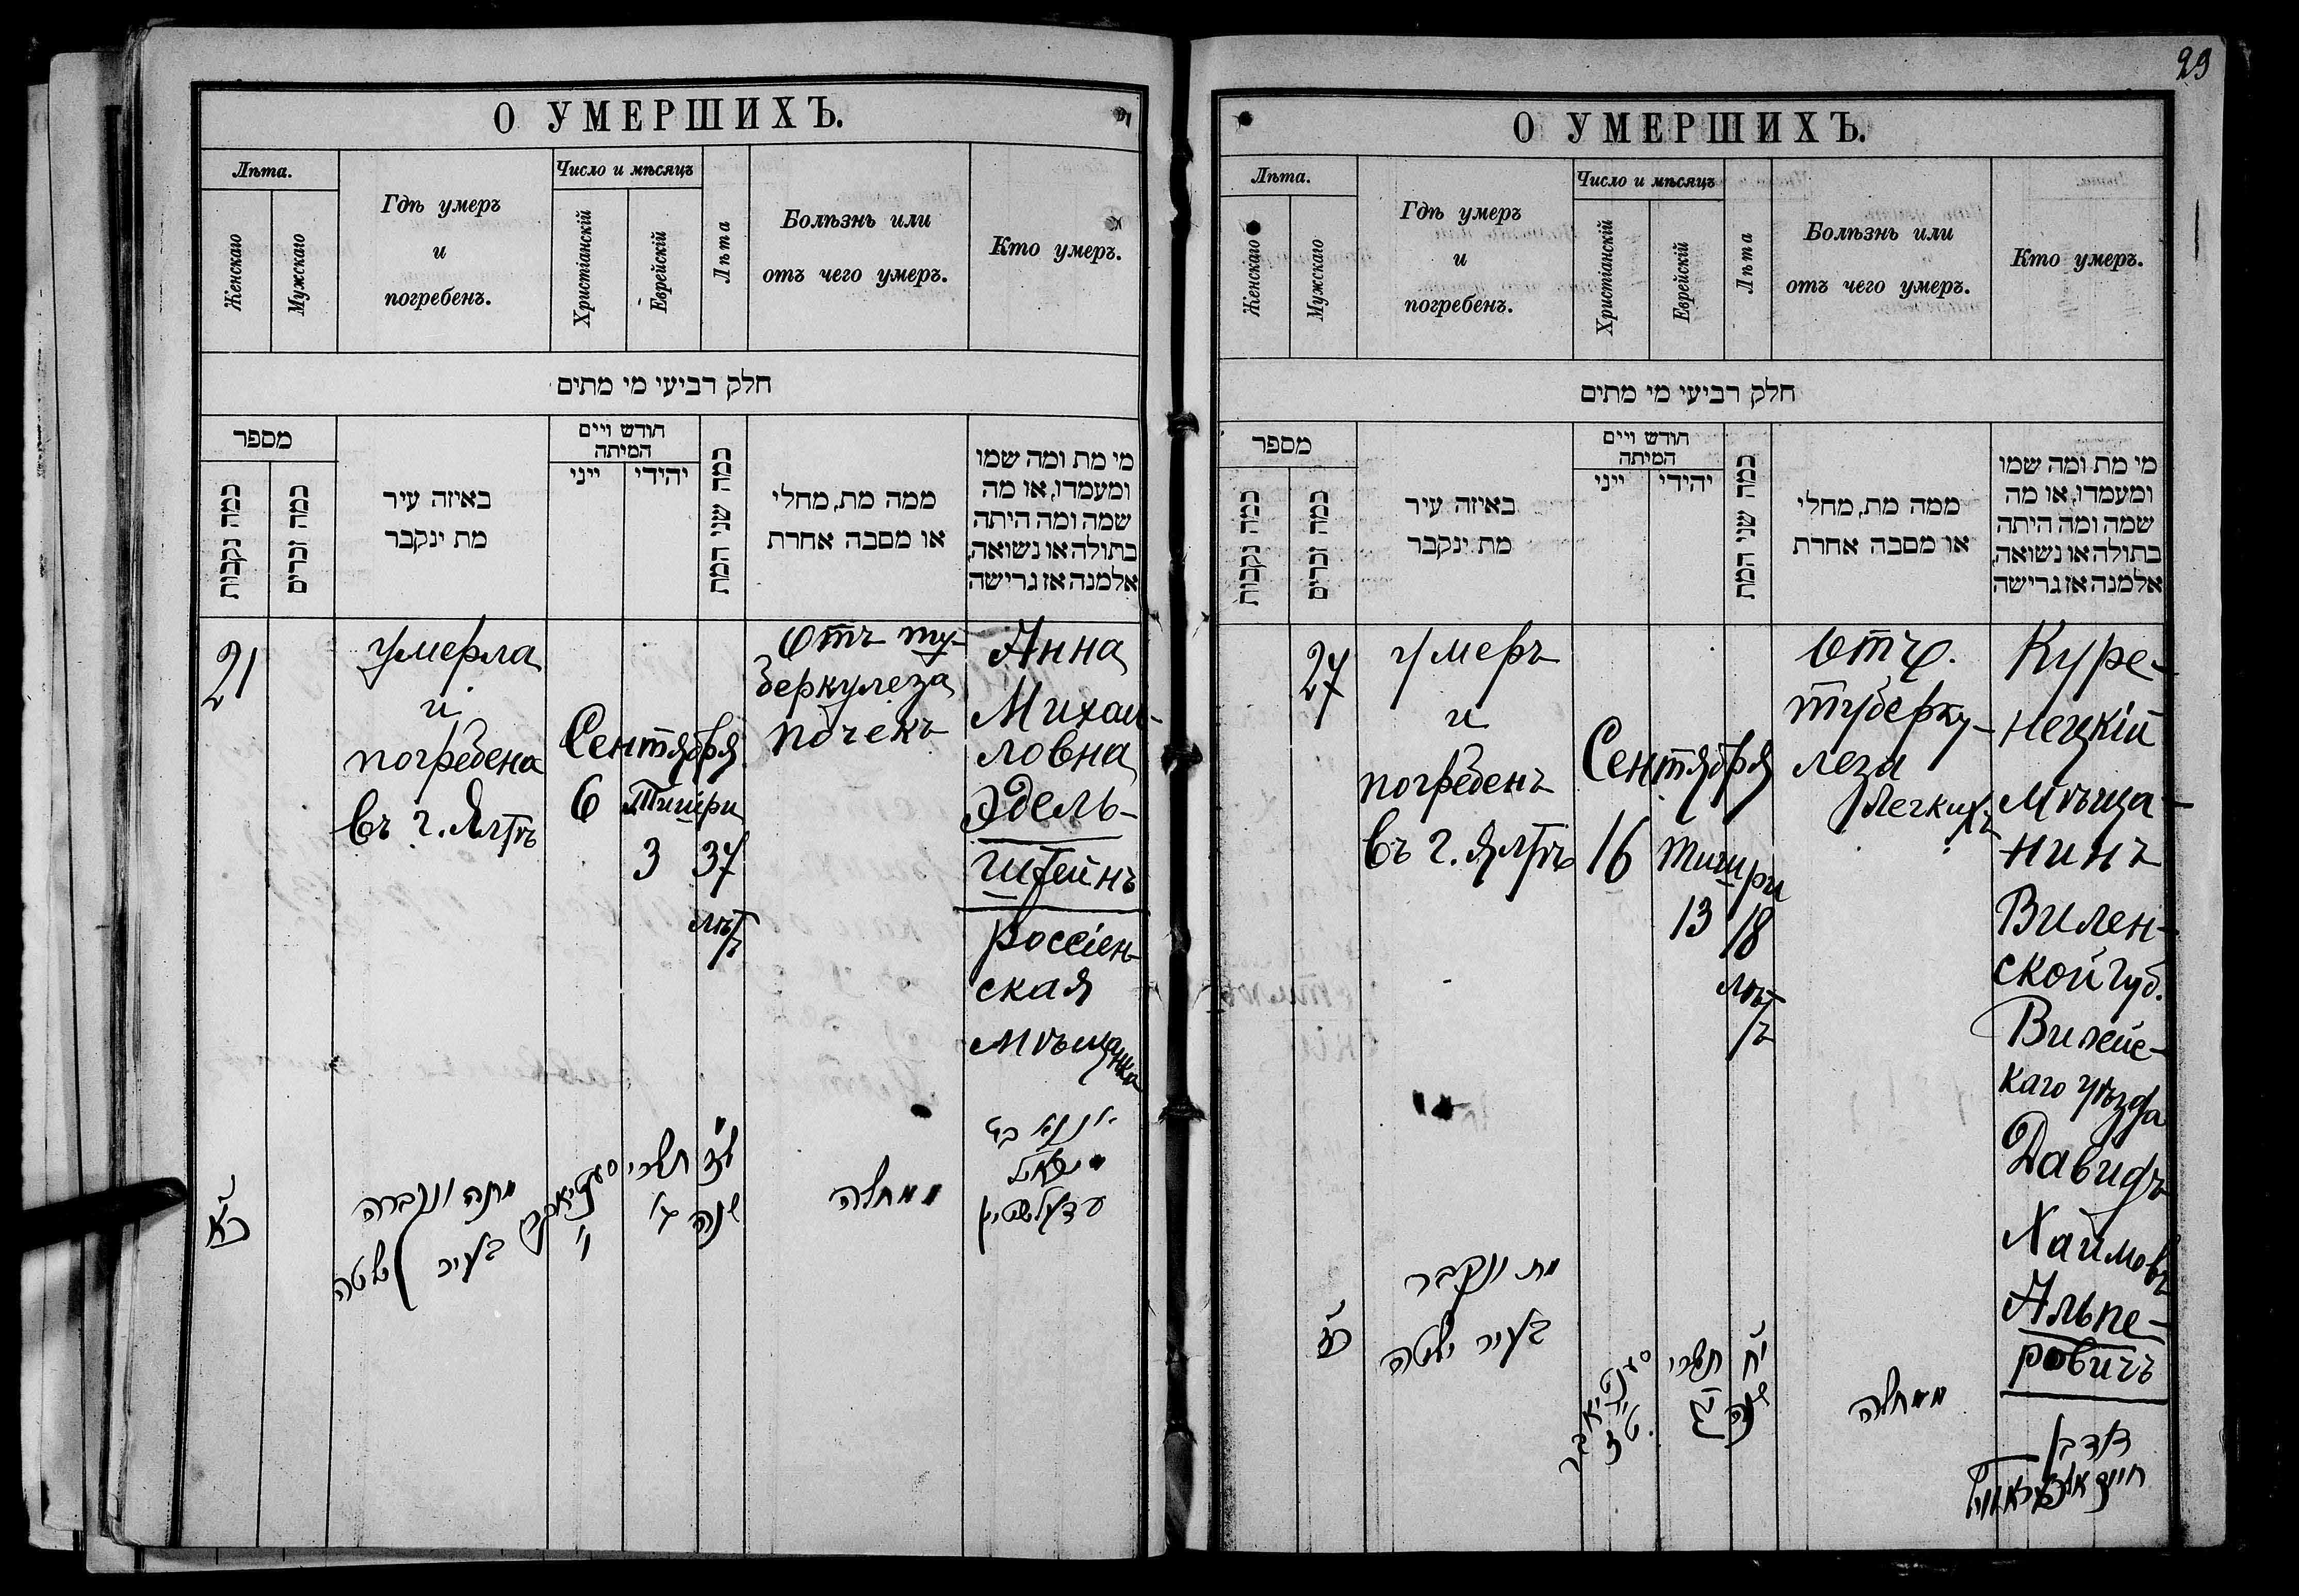 О УМЕРШИХЪ.
Лѣта.
Женскаго
Мужскаго
Гдѣ умеръ
и
погребенъ.
Число и мѣсяцъ
Христіанскій
Еврейскій
Лѣта
Болѣзнь или
отъ чего умеръ.
Кто умеръ.
חלק רביעי מי מתים
מספר
כמה נקבות
כמה זכרים
באיזה עיר
מת ינקבר
חודש ויים
המיתה
ייני
יהידי
כמה שני המת
ממה מת, מחלי
או מסבה אחרת
מי מת ומה שמו
ומעמדו, או מה
שמה ומה היתה
בתולה או נשואה,
אלמנה אז גרישה
21
умерла
и
погребена
въ г. Ялтѣ
Сентября
6
Тишри
3
37
лѣтъ
отъ ту-
беркулеза
почекъ
Анна
Михаи-
ловна
Эдель-
штейнъ
россіен-
ская
мѣщанка
כ״א
מתה ונקברה
בעיר יאלטה
סענטיאבר
ו׳
תשרי
ג׳
ל״ז
שנה
ממחלה
אננא בת
מיכאל
עדעלשטיין
29
О УМЕРШИХЪ.
Лѣта.
Женскаго
Мужскаго
Гдѣ умеръ
и
погребенъ.
Число и мѣсяцъ
Христіанскій
Еврейскій
Лѣта
Болѣзнь или
отъ чего умеръ.
Кто умеръ.
חלק רביעי מי מתים
מספר
כמה נקבות
כמה זכרים
באיזה עיר
מת ינקבר
חודש ויים
המיתה
ייני
יהידי
כמה שני המת
ממה מת, מחלי
או מסבה אחרת
מי מת ומה שמו
ומעמדו, או מה
שמה ומה היתה
בתולה או נשואה,
אלמנה אז גרישה
27
умеръ
и
погребенъ
въ г. Ялтѣ
Сентября
16
Тишри
13
18
лѣтъ
отъ
туберку-
леза
легкихъ
Куре-
нецкій
мѣща-
нинъ
Вилен-
ской губ.
Вилейс-
каго уѣзда
Давидъ
Хаимовъ
Альпе-
ровичъ
כ״ז
מת ונקבר
בעיר יאלטה
סענטיאבר
ט״ז
תשרי
י״ג
י״ח
שנה
ממחלה
דוד בן
חיים אלפעראוויץ